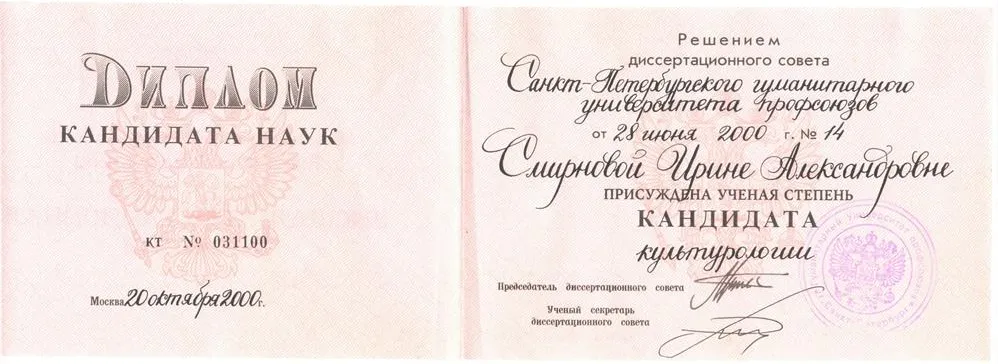 ДИПЛОМ
КАНДИДАТА НАУК
КТ № 031100
Москва 20 октября 2000 г.
Решением
диссертационного совета
Санкт-Петербургского гуманитарного
университета профсоюзов
от 28 июня 2000 г. № 14
Смирновой Ирине Александровне
ПРИСУЖДЕНА УЧЕНАЯ СТЕПЕНЬ
КАНДИДАТА
культурологии
Председатель диссертационного совета
Ученый секретарь
диссертационного совета